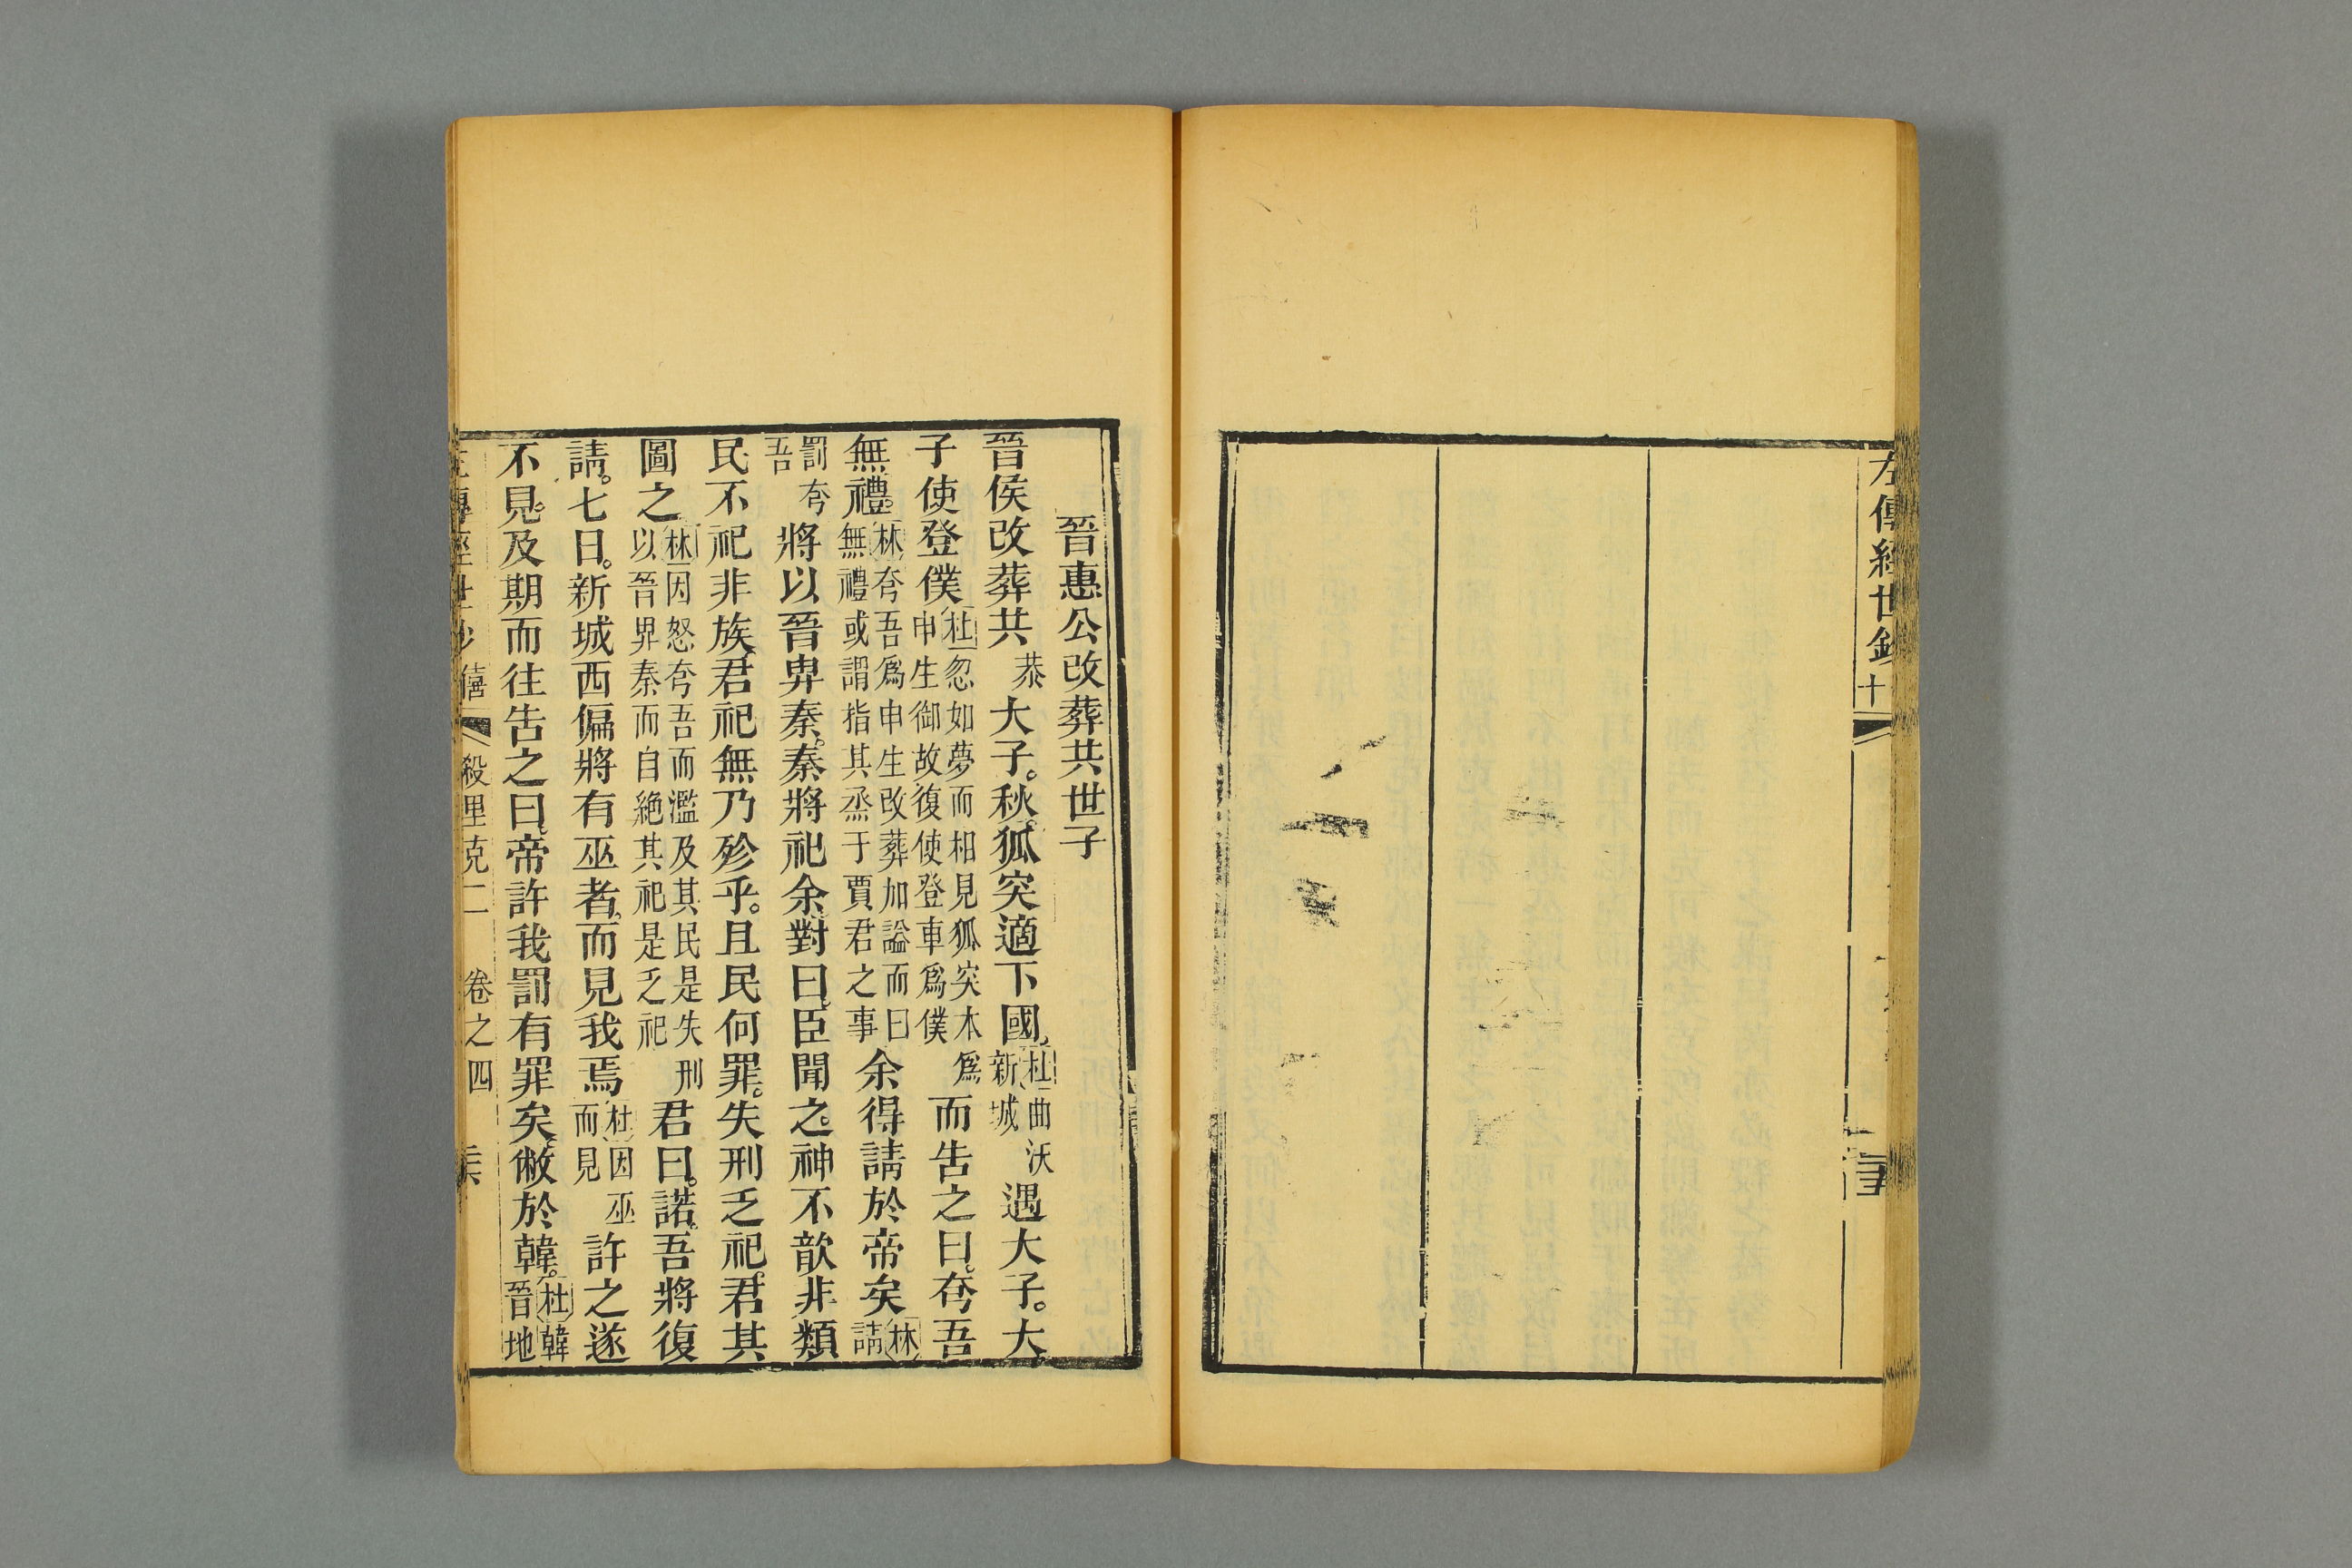 左傳經世鈔
十
晉惠公改葬共世子
晉侯改葬共恭大子。秋。狐突適下國。杜曲沃新城遇大子。大
子使登僕杜忽如夢而相見狐突本爲申生御故復使登車爲僕而告之曰。夷吾
無禮。林夷吾爲申生改葬加謚而曰無禮或謂指其烝于賈君之事余得請於帝矣林請
罰夷吾將以晉畀秦。秦將祀余。對曰。臣聞之。神不歆非類
民不祀非族。君祀無乃殄乎。且民何罪。失刑乏祀。君其
圖之林因怒夷吾而濫及其民是失刑以晉畀秦而自絶其祀是乏祀君曰。諾。吾將復
請。七日。新城西偏將有巫者。而見我焉杜因巫而見許之遂
不見。及期而往告之曰。帝許我罰有罪矣。敝於韓。杜韓晉地
左傳經世鈔 僖 殺里克二 卷之四